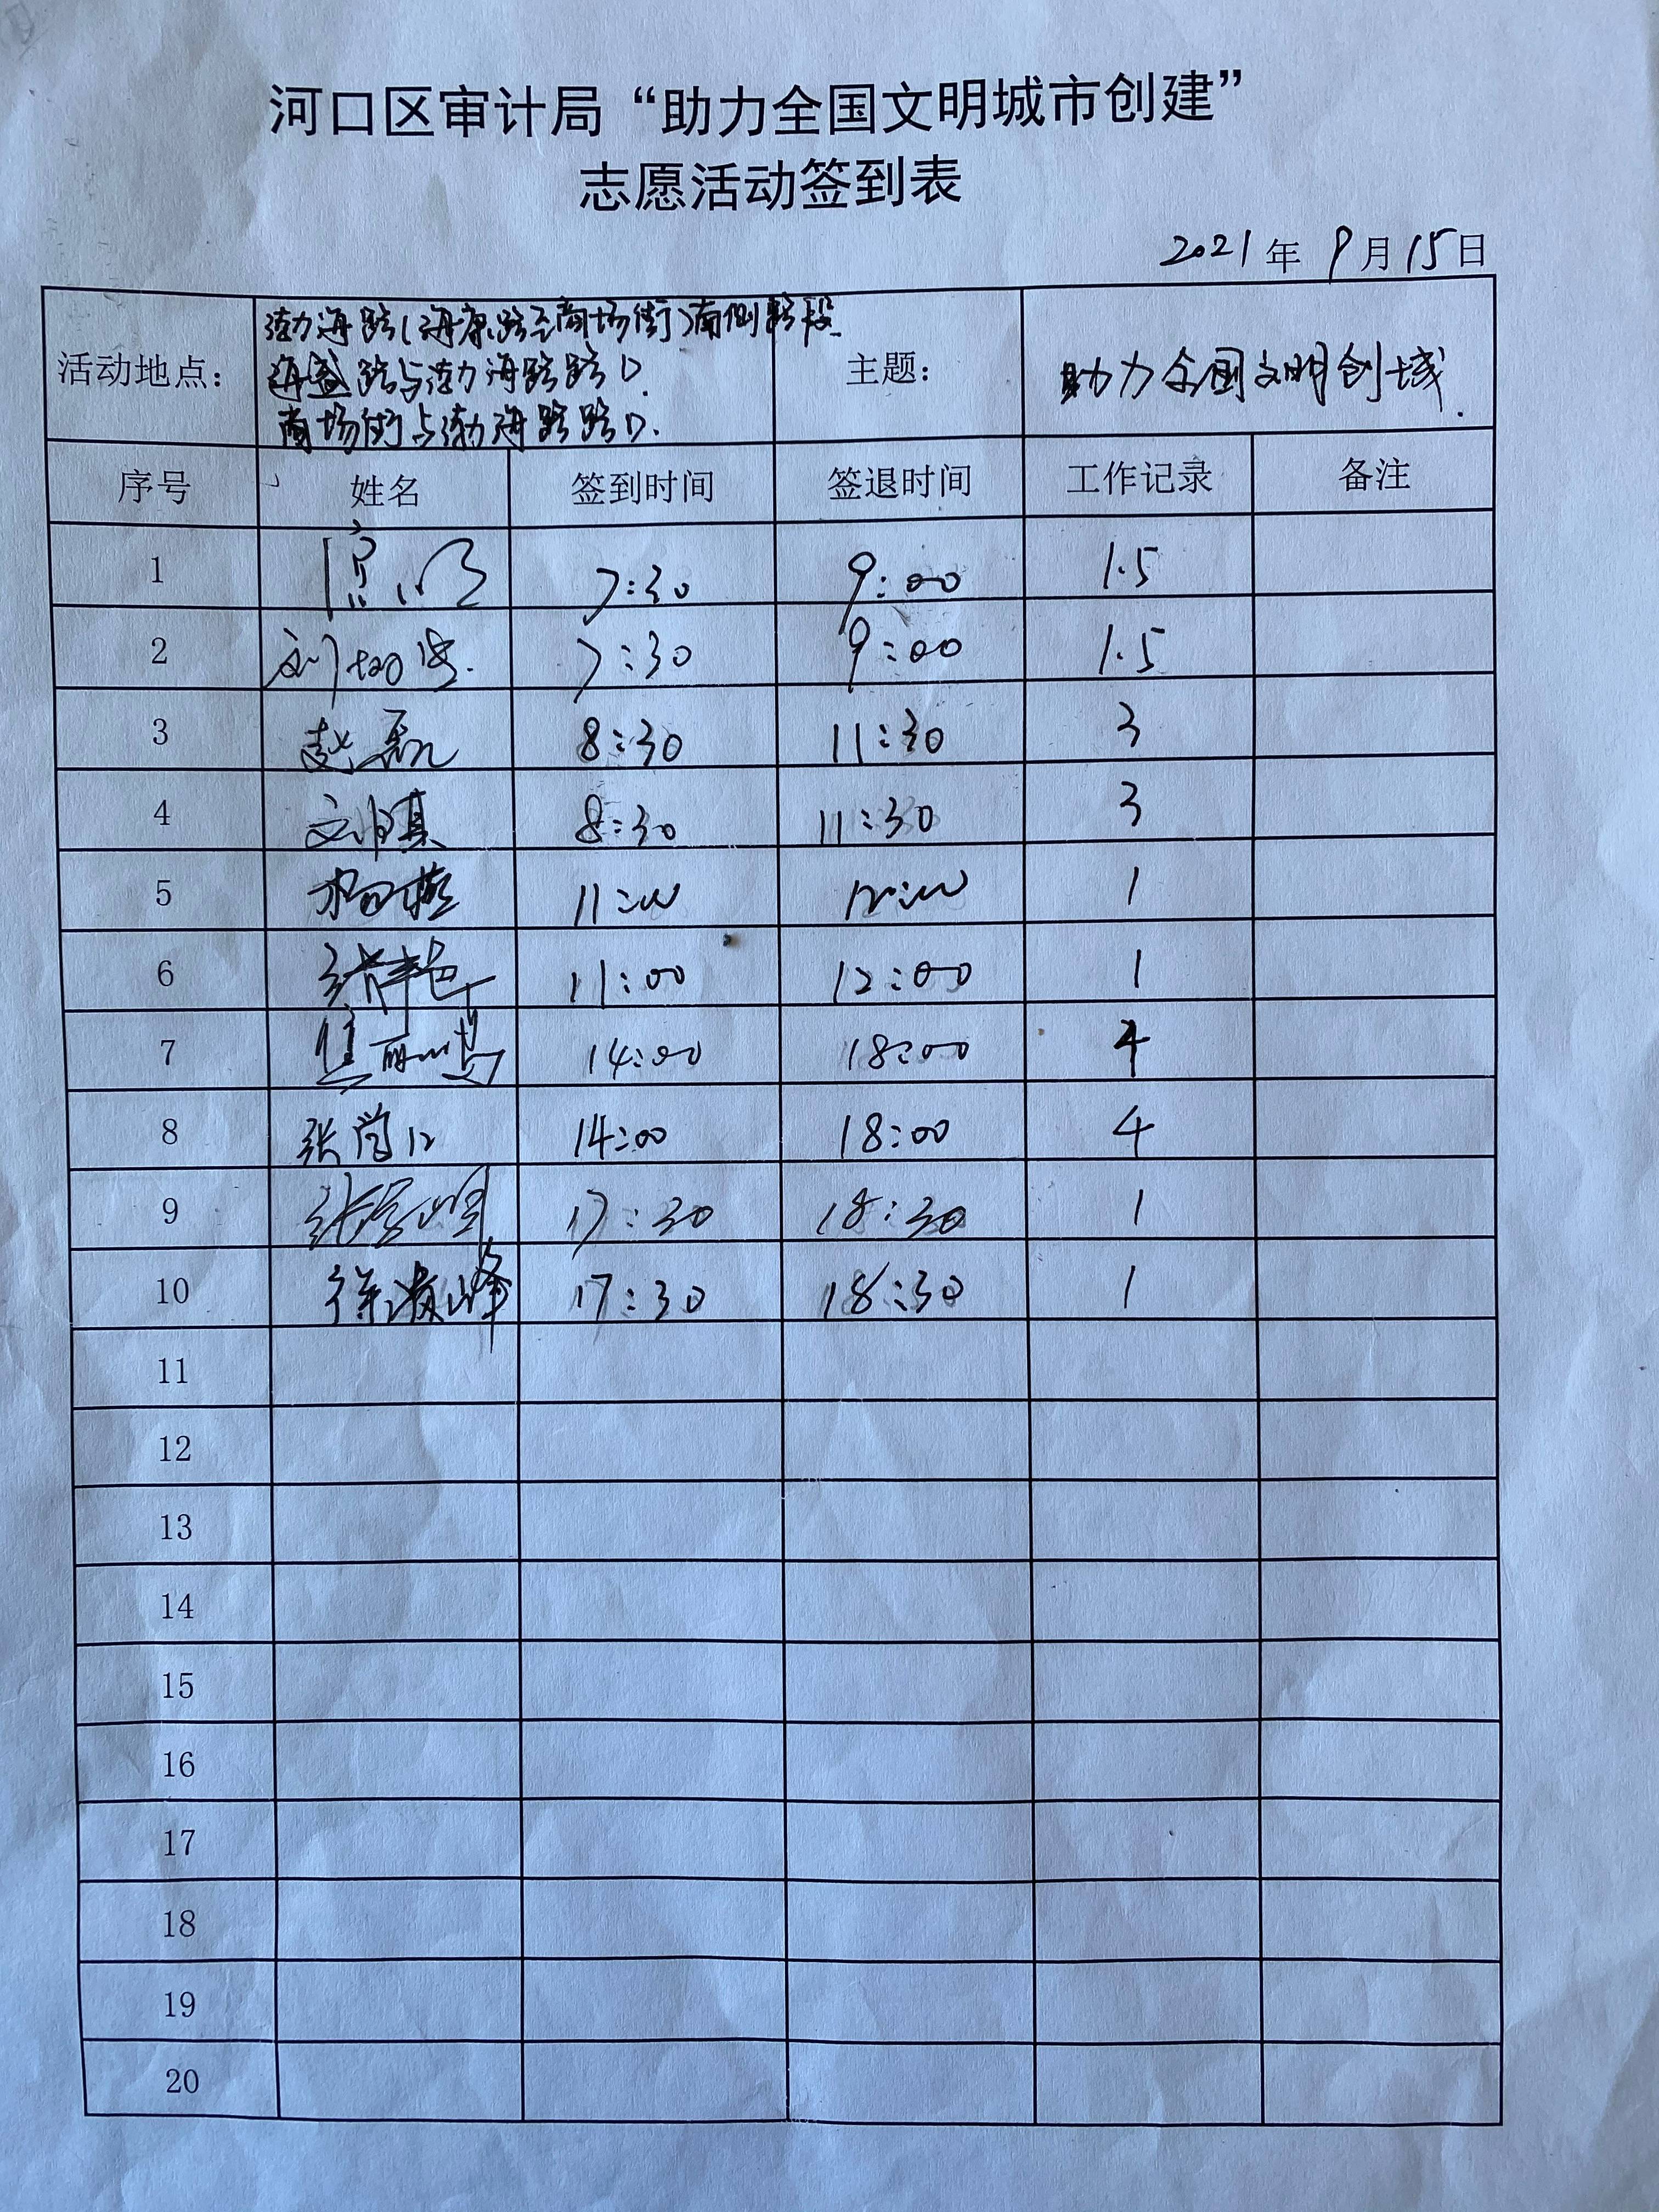 河口区审计局“助力全国文明城市创建”
志愿活动签到表
2021年 9月15日
活动地点：
渤海路(海康路至商场街)南侧路段
海盛路与渤海路路口.
商场街与渤海路路口.
主题：
助力全国文明创城.
序号 姓名 签到时间 签退时间 工作记录 备注
1 7:30 9:00 1.5
2 7:30 9:00 1.5
3 赵磊 8:30 11:30 3
4 8:30 11:30 3
5 杨燕 11:00 12:00 1
6 11:00 12:00 1
7 14:00 18:00 4
8 14:00 18:00 4
9 17:30 18:30 1
10 17:30 18:30 1
11
12
13
14
15
16
17
18
19
20